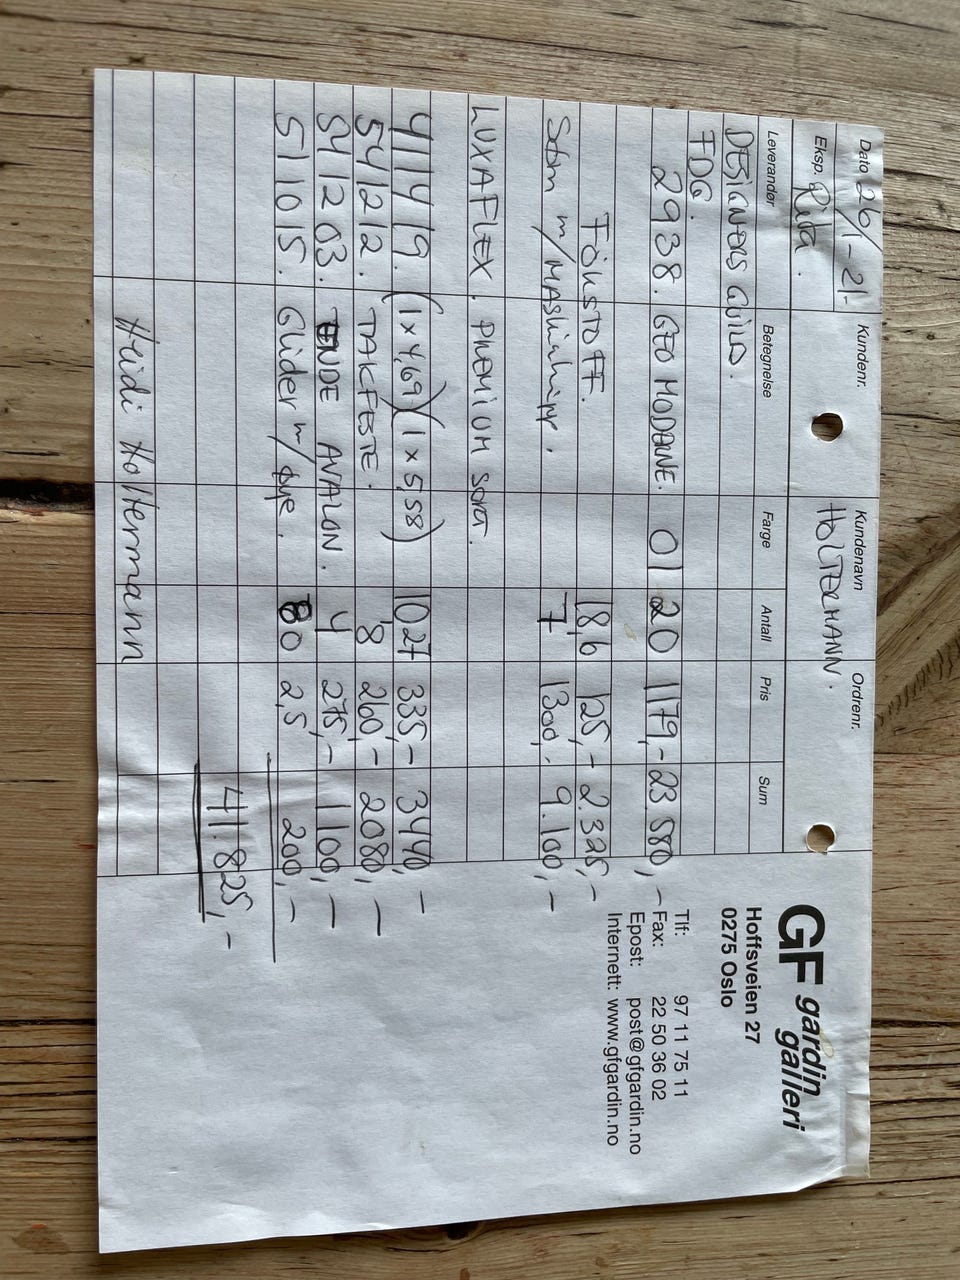 GF gardin galleri
Hoffsveien 27
0275 Oslo
Tlf: 97 11 75 11
Fax: 22 50 36 02
Epost: post@gfgardin.no
Internett: www.gfgardin.no
Dato 26/1-21- Kundenr. Kundenavn Ordrenr.
Eksp. Rita. HOLTERMANN.
Leverandør Betegnelse Farge Antall Pris Sum
DESIGNERS GUILD.
FDG.
2938. GEO MODERNE. 01 20 1179,- 23 580,-
FÔRSTOFF. 18,6 125,- 2.325,-
Søm m/MASKINHIPP. 7 1300,- 9.100,-
LUXAFLEX. PREMIUM sort.
411419. (1 x 4,69)(1 x 5,58) 10,27 335,- 3440,-
541212. TAKFESTE. 8 260,- 2080,-
541203. ENDE AVALON. 4 275,- 1100,-
511015. Glider m/ øye. 80 2,5 200,-
41.825,-
Heidi Holtermann